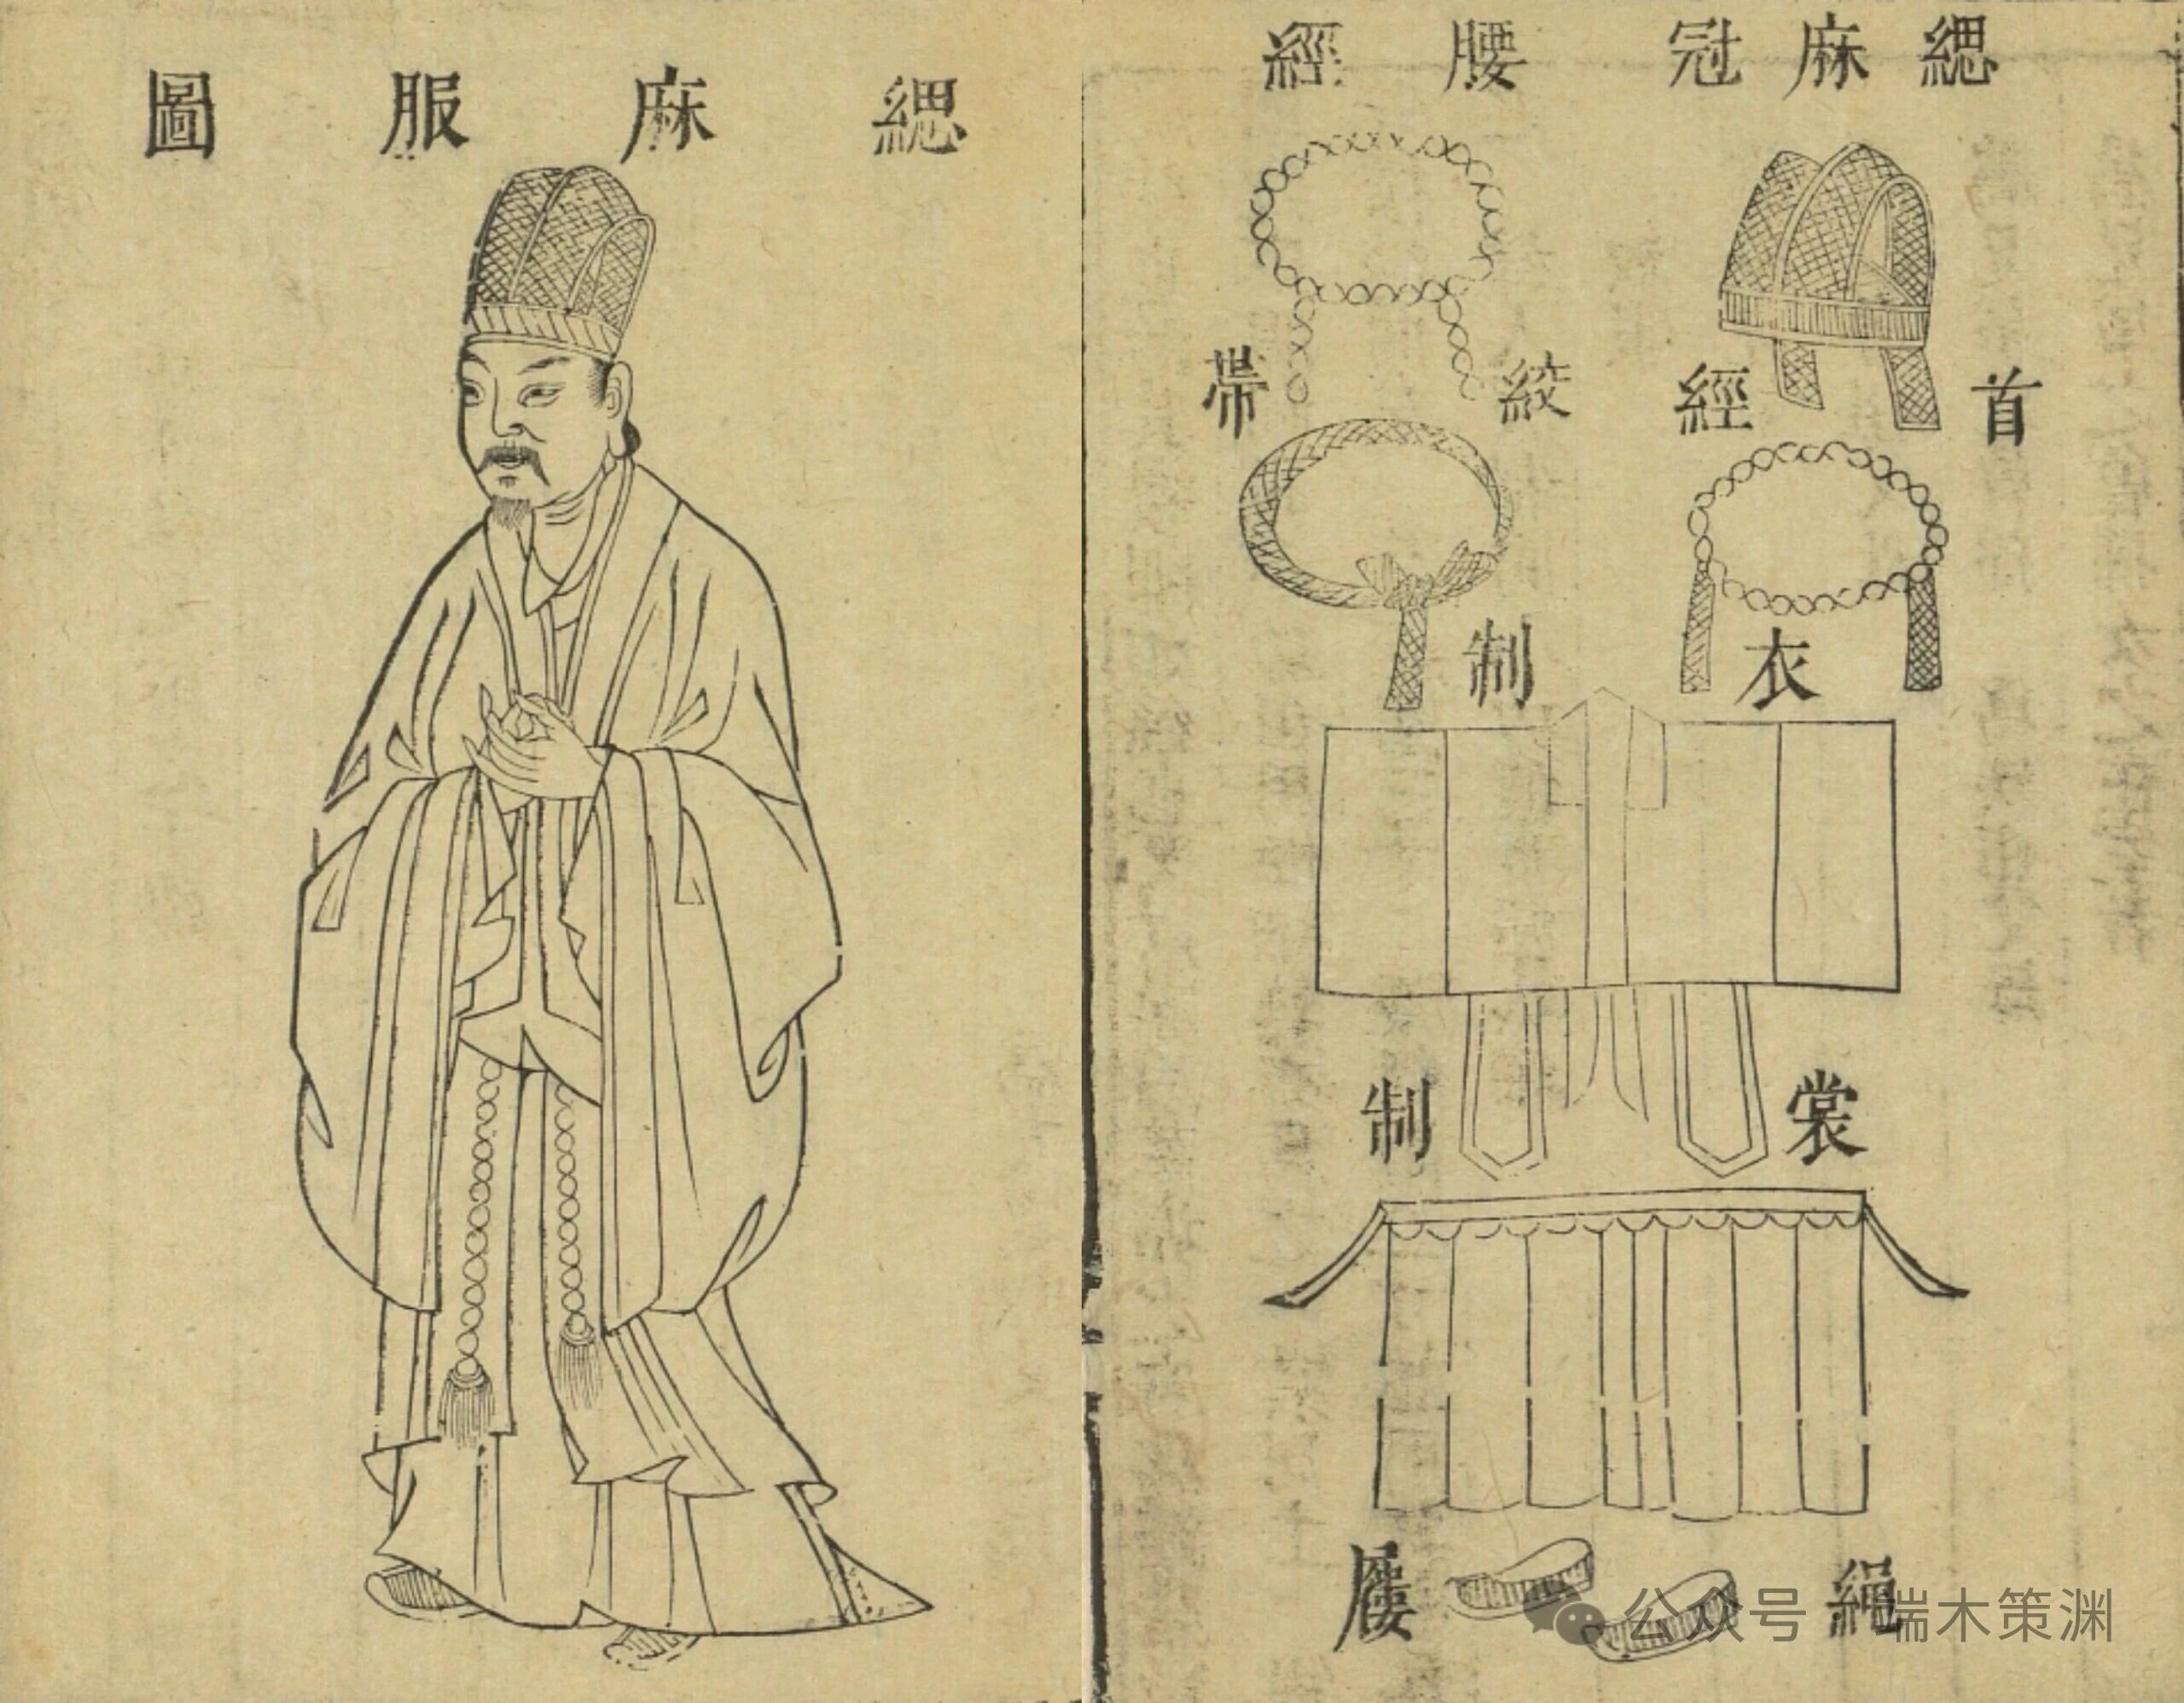 緦麻冠
腰經
首經
絞帶
衣制
裳制
繩屨
緦麻服圖
公众号 端木策渊